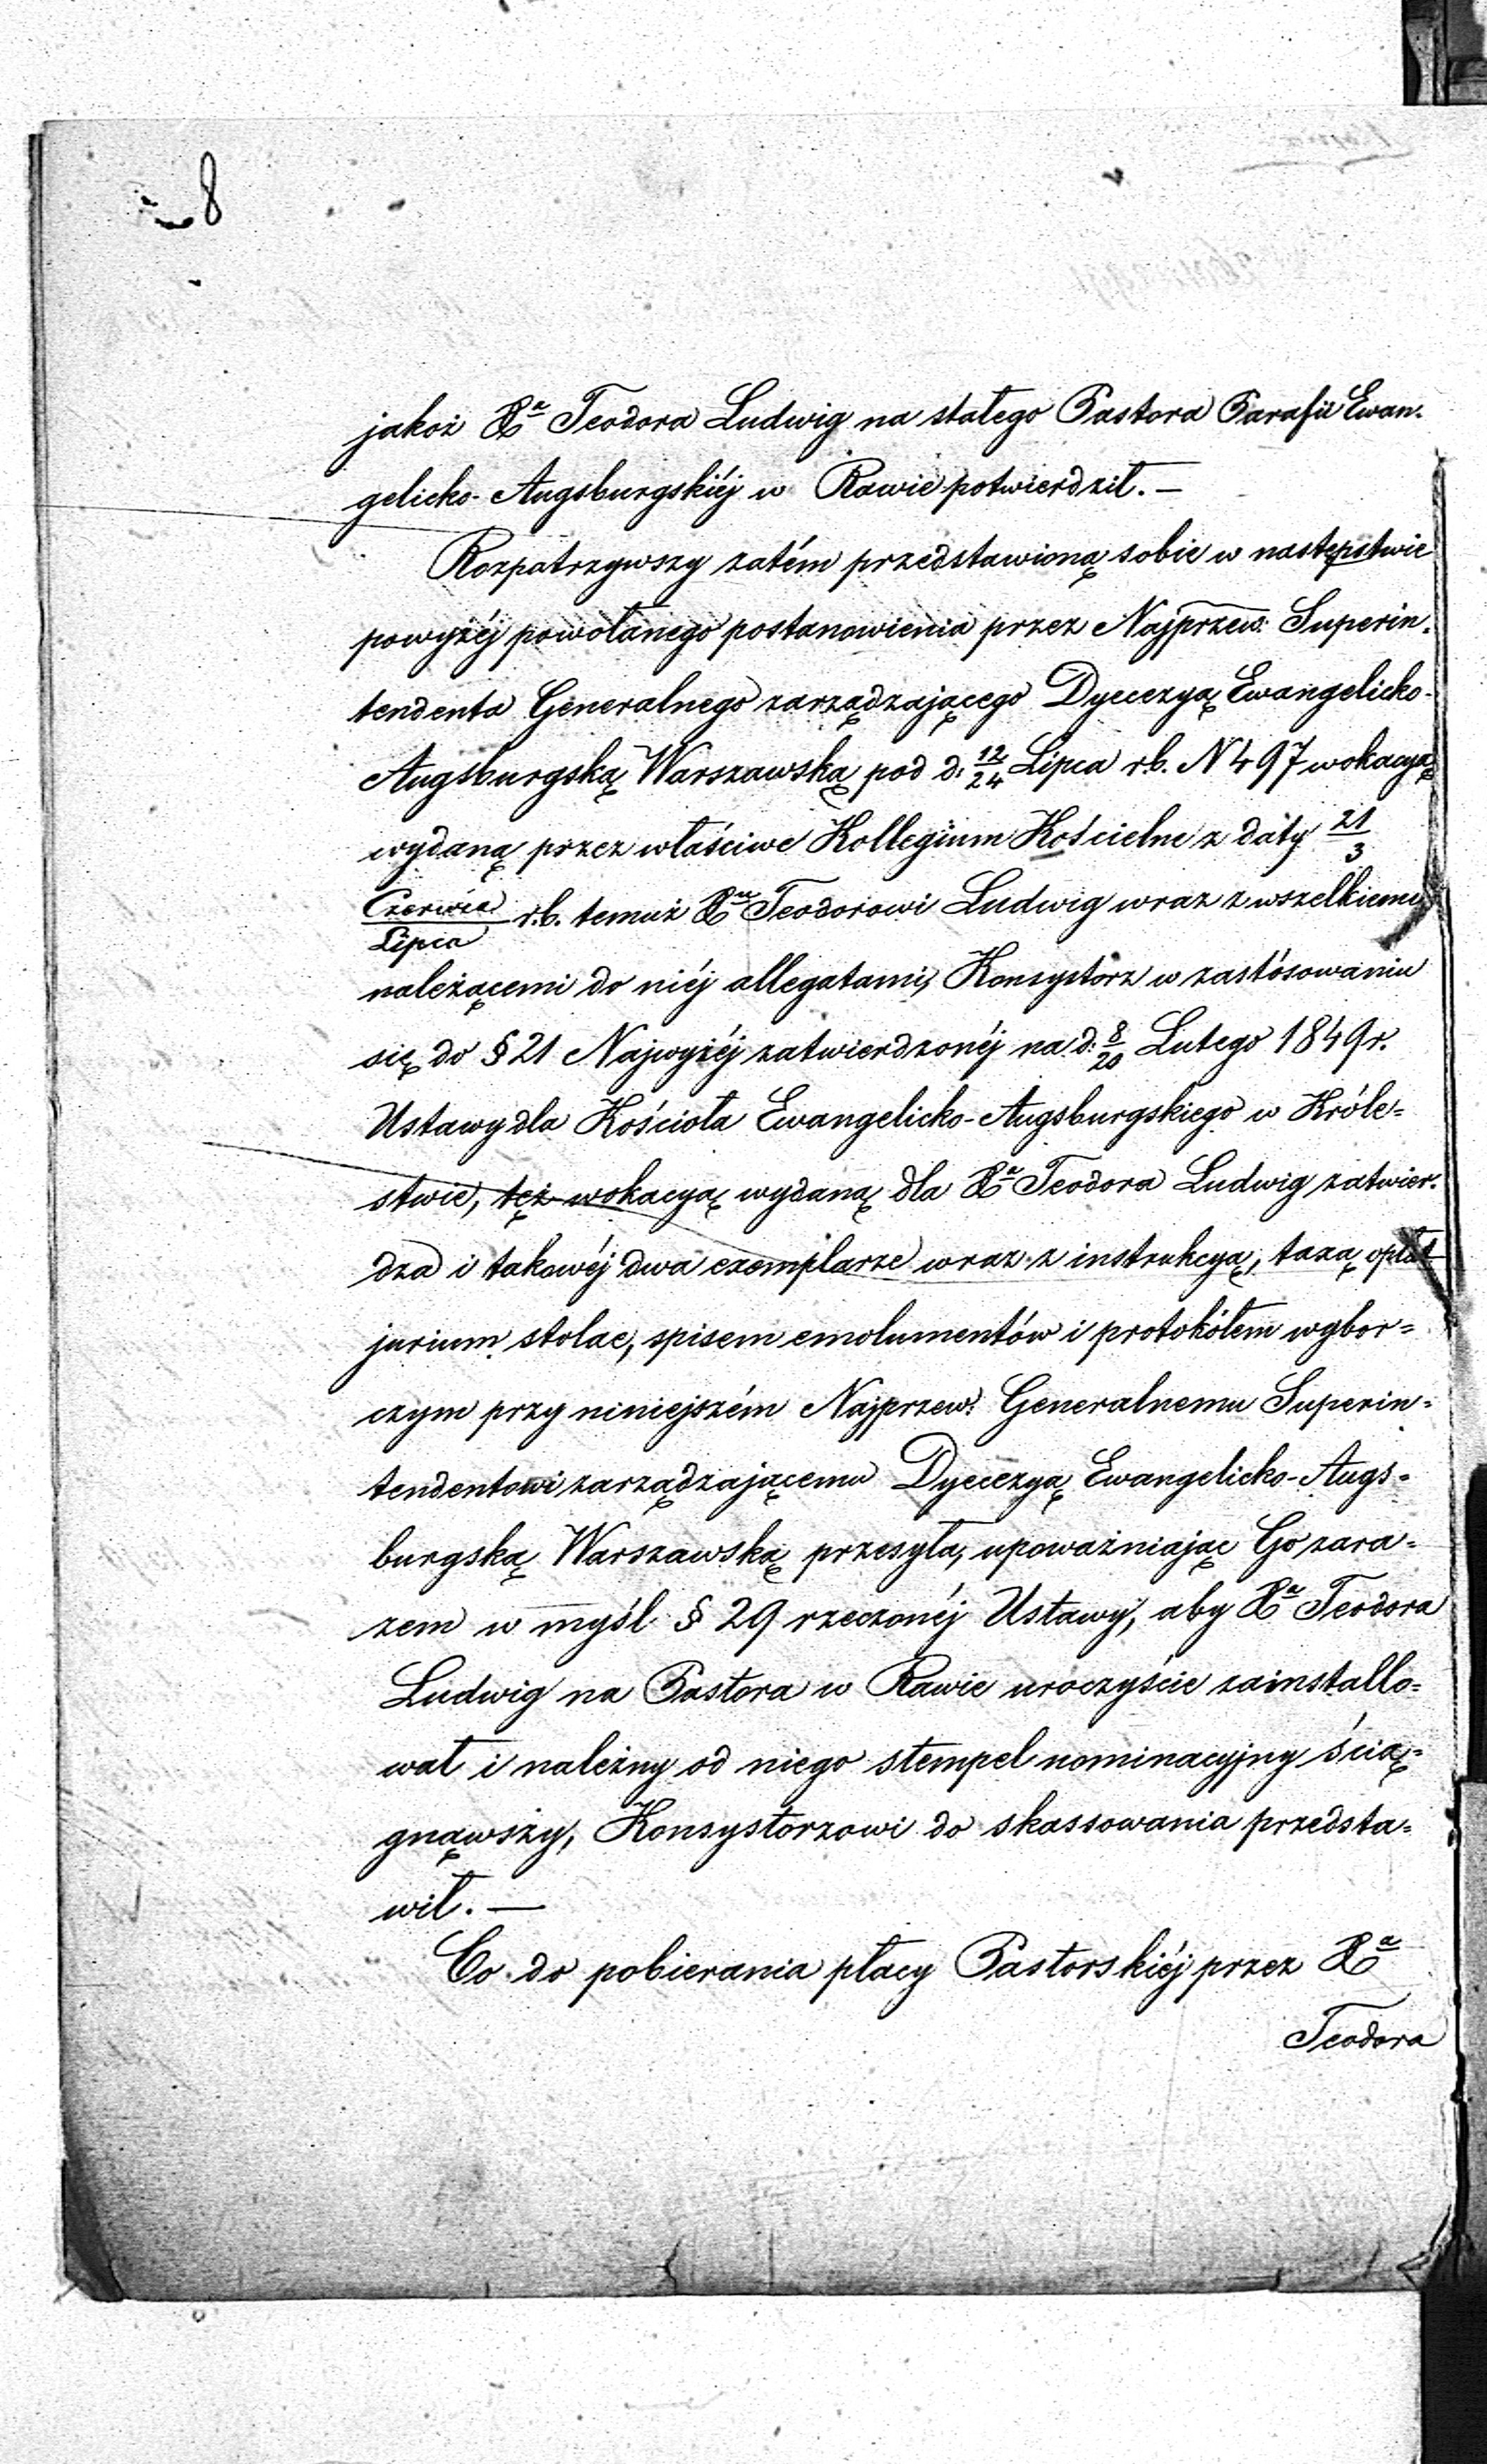 8
jakoż X^a Teodora Ludwig na stałego Pastora Parafii Ewan-
gelicko-Augsburgskiéj w Rawie potwierdził. —
Rozpatrzywszy zatém przedstawioną sobie w następstwie
powyżéj powołanego postanowienia przez Najprzew: Superin-
tendenta Generalnego zarządzającego Dyecezyą Ewangelicko-
Augsburgską Warszawską pod d: 12/24 Lipca r.b. N 497 wokacyą
wydaną przez właściwe Kollegium Kościelne z daty 21/3
Czerwca/Lipca r.b. temuż X^u Teodorowi Ludwig wraz z wszelkiemi
należącemi do niéj allegatami, Konsystorz w zastósowaniu
się do § 21 Najwyżéj zatwierdzonéj na d: 8/20 Lutego 1849 r.
Ustawy dla Kościoła Ewangelicko-Augsburgskiego w Króle=
stwie, też wokacyą wydaną dla X^a Teodora Ludwig zatwier-
dza i takowéj dwa exemplarze wraz z instrukcyą, taxą opłat
jurium stolae, spisem emolumentów i protokółem wybor=
czym przy niniejszém Najprzew: Generalnemu Superin=
tendentowi zarządzającemu Dyecezyą Ewangelicko-Augs=
burgską Warszawską przesyła, upoważniając Go zara=
zem w myśl § 29 rzeczonéj Ustawy, aby X^a Teodora
Ludwig na Pastora w Rawie uroczyście zainstallo=
wał i należny od niego stempel nominacyjny ścią=
gnąwszy, Konsystorzowi do skassowania przedsta=
wił. —
Co do pobierania płacy Pastorskiéj przez X^a
Teodora